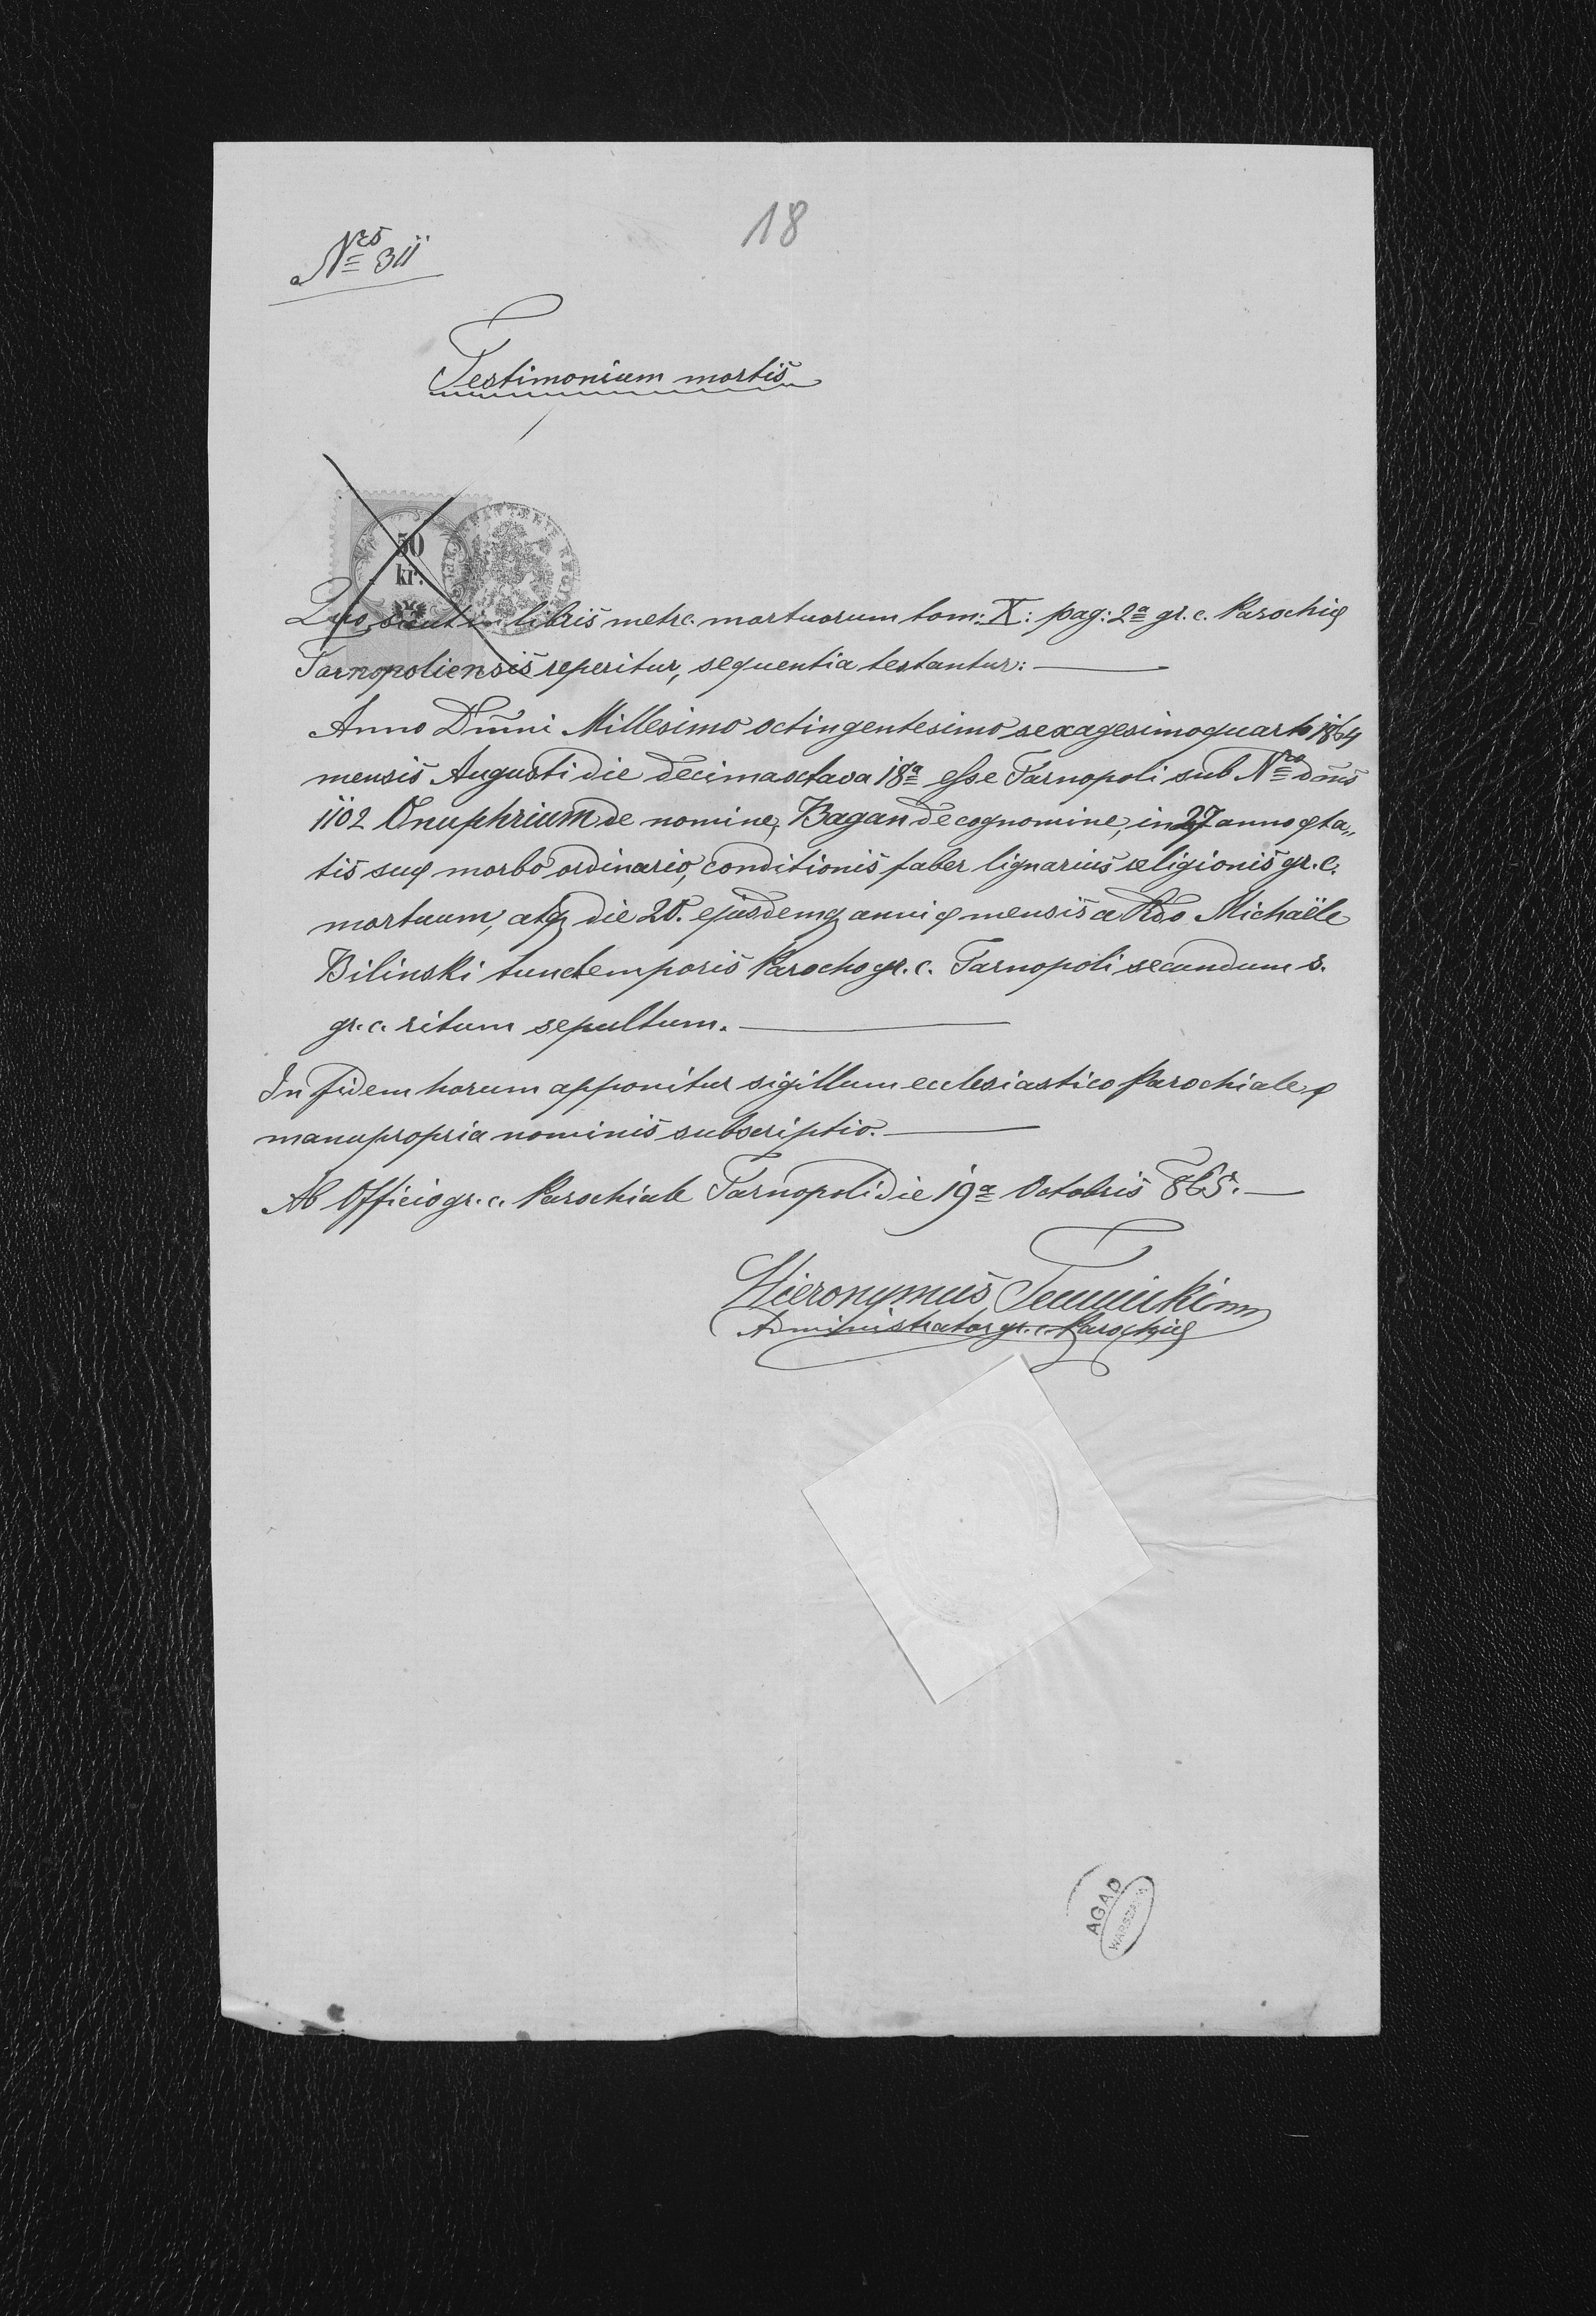 18
Nro 311
Testimonium mortis
50
kr.
Quo sicut in libris metrc. mortuorum tom: X: pag: 2a gr. c. Parochię
Tarnopoliensis reperitur, sequentia testantur:
Anno Dnni Millesimo octingentesimo sexagesimoquarto 1864
mensis Augusti die decimaoctava 18a esse Tarnopoli sub Nro dmũs
1102 Onuphrium de nomine, Bagan de cognomine, in 27 anno ęta„
tis suę morbo ordinario, conditionis faber lignarius religionis gr. c.
mortuum, atq die 20. ejusdemq anni ę mensis a Rdo Michaële
Bilinski tunctemporis Parocho gr. c. Tarnopoli secundum s.
gr. c. ritum sepultum.
In fidem horum apponitur sigillum ecclesiastico Parochiale ę
manupropria nominis subscriptio.
Ab Officio gr. c. Parochiale Tarnopoli die 19a Octobris 865.
Hieronymus
Administrator gr. c. Parochię
AGAD
WARSZAWA